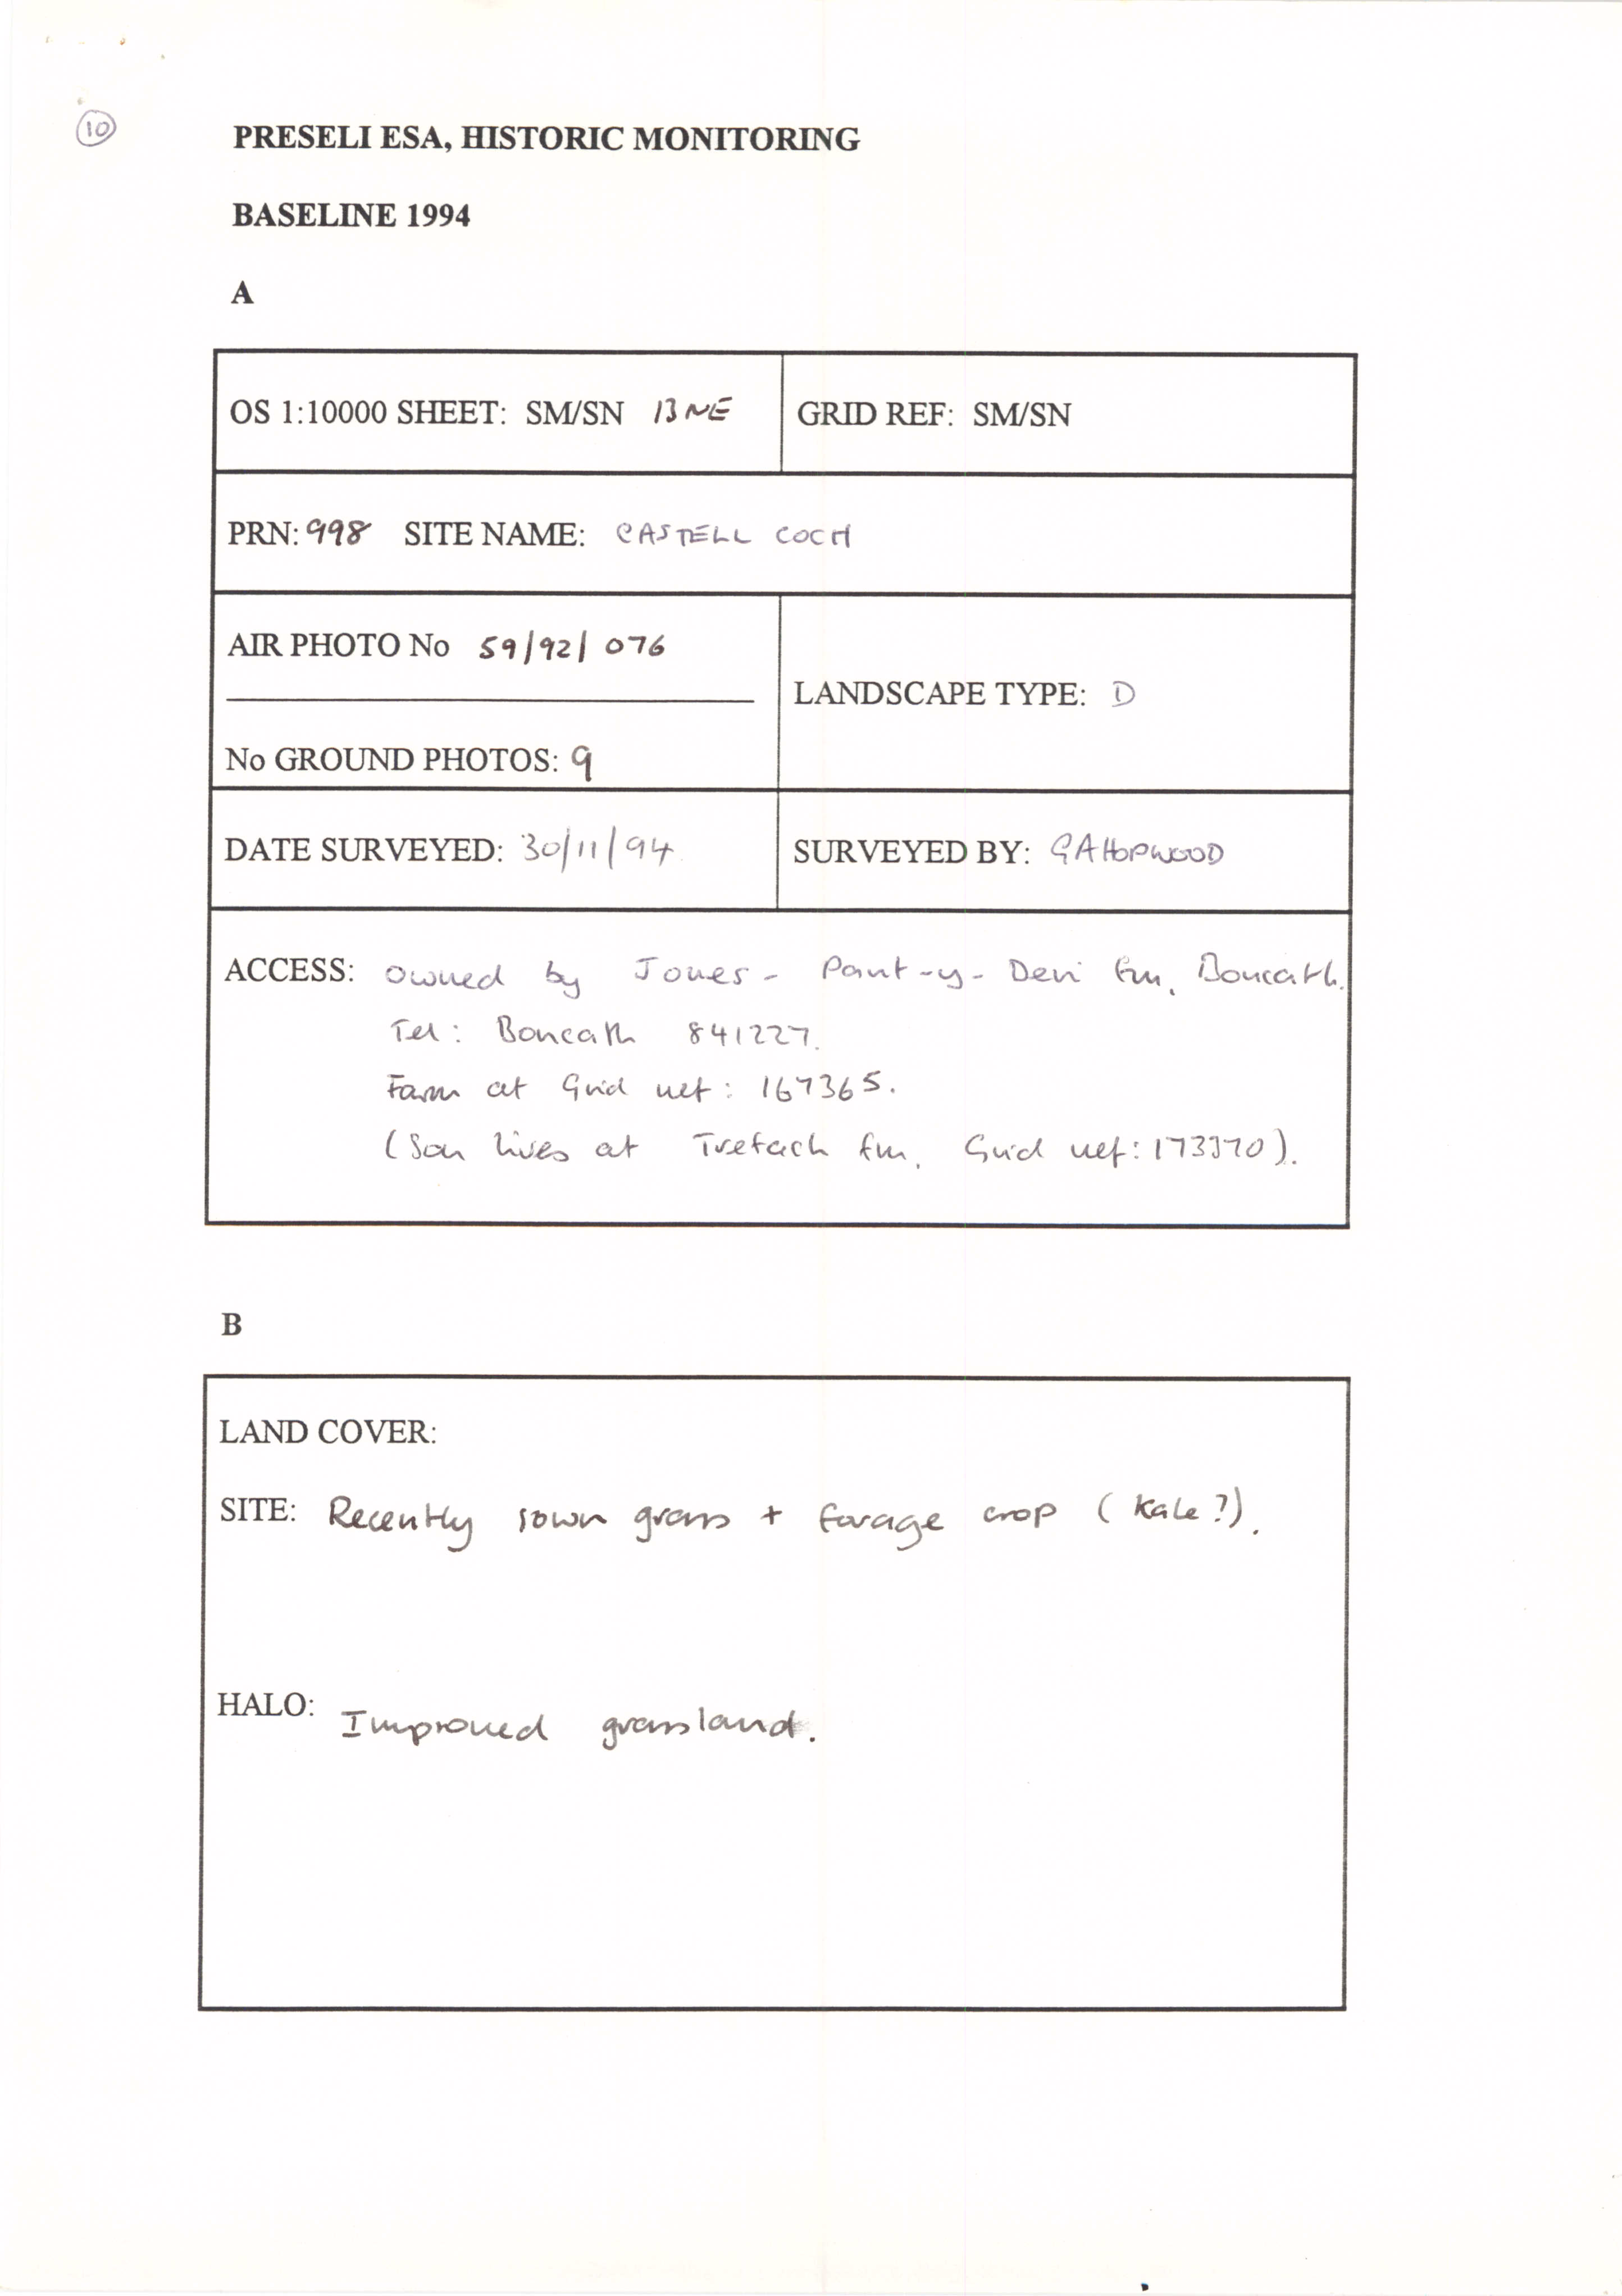 10
PRESELI ESA, HISTORIC MONITORING
BASELINE 1994
A
OS 1:10000 SHEET: SM/SN 13NE
GRID REF: SM/SN
PRN: 998 SITE NAME: CASTELL COCH
AIR PHOTO No 59/92/076
LANDSCAPE TYPE: D
No GROUND PHOTOS: 9
DATE SURVEYED: 30/11/94
SURVEYED BY: GAHOPWOOD
ACCESS: Owned by Jones - Pant-y-Deri fm, Boncath.
Tel: Boncath 841227.
Farm at Grid ref: 167365.
(Son lives at Trefach fm, Grid ref: 173370).
B
LAND COVER:
SITE: Recently sown grass + forage crop (Kale?).
HALO: Improved grassland.